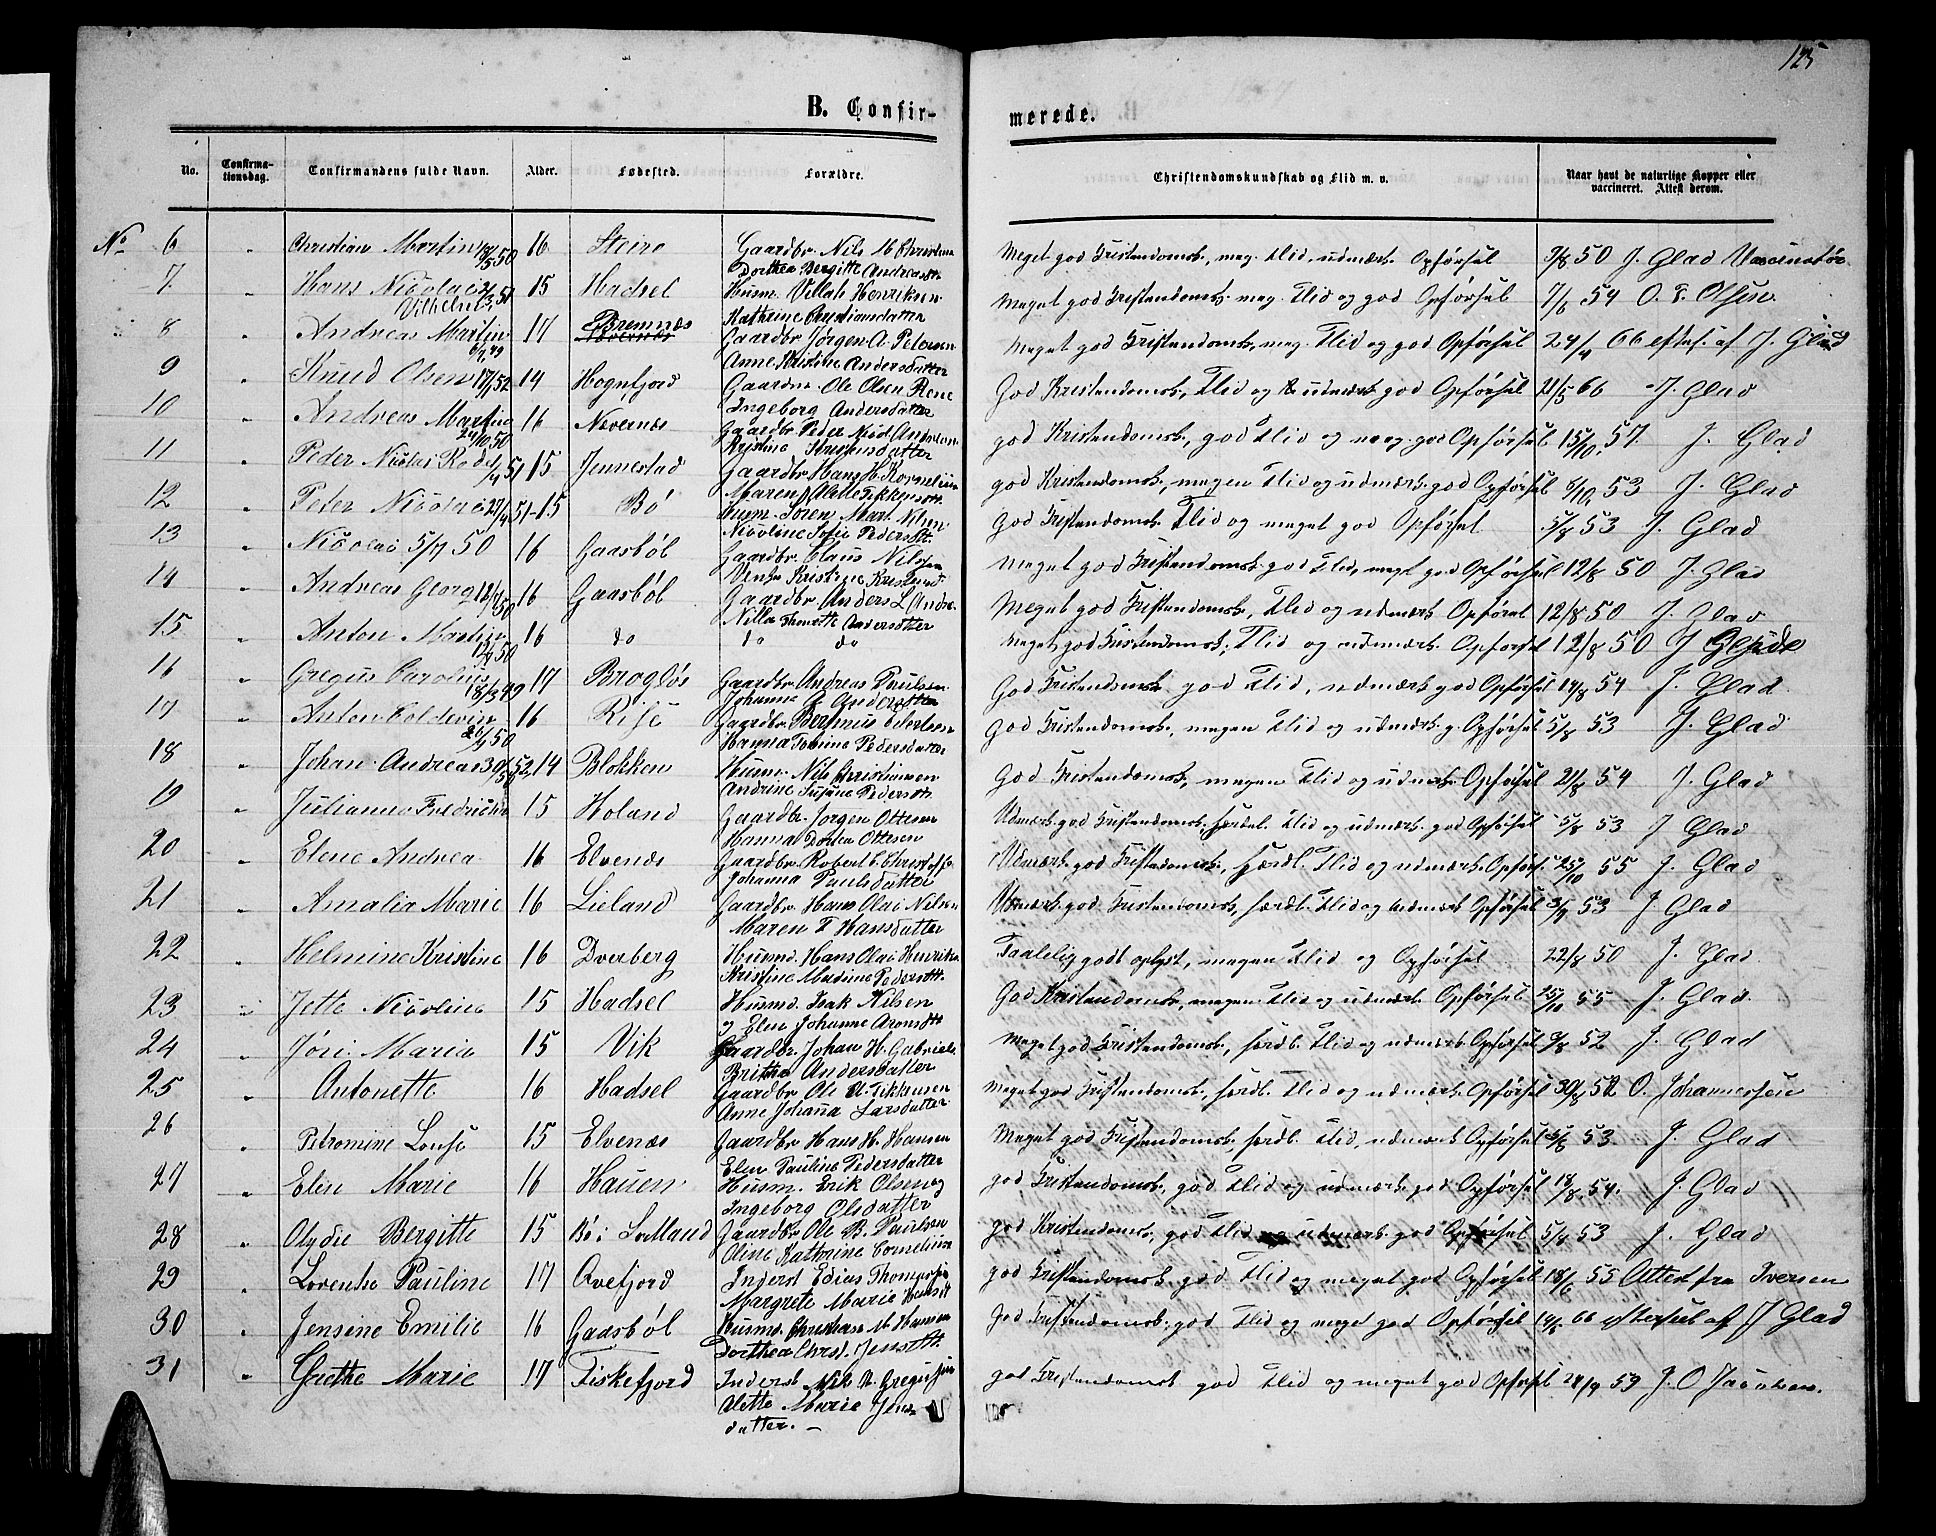 125
B. Confirmerede.
No. Confirmationsdag. Confirmandens fulde Navn. Alder. Fødested. Forældre. Christendomskundskab og Flid m. v. Naar havt de naturlige Kopper eller vaccineret. Attest derom.
No 6 " Christian Martin 18/5 50 16 Steiro Gaardbr. Nils M Christensen Meget god Kristendomsk., meg. Flid, udmærk. Opførsel 9/8 50 J. Glad Vaccinatør
Dorthea Bergitte Andreasdtt
7. " Hans Nicolai Vilhelm 51 15 Hadsel Husm. Villats Henriksen Meget god Kristendomsk. meg. Flid og god Opførsel 7/6 54 O. T. Olsen
Kathrine Christiansdatter
8 " Andreas Martin 49 17 Bremnæs Gaardbr Jørgen A. Petersen Meget god Kristendomsk., meg. Flid og god Opførsel 24/4 66 af J. Glad
Anne Kristine Andersdatter
9 " Knud Olsen 17/1 52 14 Hognfjord Gaardm. Ole Olsen Rene God Kristendomsk., Flid og udmærk. god Opførsel 21/5 66 J. Glad
Ingeborg Andersdatter
10 " Andreas Martin 24/10 50 16 Nævernæs Gaardbr Peder Nicol Andersen god Kristendomsk., god Flid og meg. god Opførsel 15/10 57. J. Glad
Kristine datter
11 " Peder Nicolai Rode 1/4 51 15 Jennestad Gaardbr Hans H. Korneliusen god Kristendomsk., megen Flid og udmærk. god Opførsel 8/10 53 J. Glad
Maren
12 " Peter Nicolai 27/4 51 15 Bø Husm. Søren Mart. Nilsen God Kristendomsk. Flid og meget god Opførsel. 5/8 53 J. Glad
Nicoline Sofie Pedersdtt.
13 " Nicolai 5/7 50 16 Gaasbøl Gaardbr. Claus Nilsen Meget god Kristendomsk. god Flid, meget god Opførsel 12/8 50 J. Glad
Kristine
14 " Andreas Georg 50 16 Gaasbøl Gaardbr Anders L Andre. Meget god Kristendomsk., Flid og udmærk Opførsel 12/8 50 J. Glad
Nilla Andersdatter
15 " Anton Martin 50 16 do do do Meget god Kristendomsk., Flid og udmærk. Opførsel 12/8 50 J
16 " Gregus Carolius 18/3 49 17 Brogløs Gaardbr Andreas Paulsen God Kristendomsk god Flid, udmærk god Opførsel 14/8 54 J. Glad
Johanna
17 " Anton Coldevin 26/9 50 16 Risø Gaardbr God Kristendomsk, megen Flid og udmærk. g. Opførsel 5/8 53 J. Glad
Hanna Tobine Pedersdatter
18 " Johan Andreas 52 14 Blokken Husm. Nils Christiansen God Kristendomsk., megen Flid og udmærk. Opførsel 21/8 54 J. Glad
Andrine Susane Pedersdtt.
19 " Juliane Fredrikke 15 Holand Gaardbr. Jørgen Ottesen Udmærk. god Kristendomsk., særdel. Flid og udmærk. god Opførsel 5/8 53 J Glad
Hanna Dorthea Ottesen
20 " Elene Andrea 16 Elvenæs Gaardbr Robert C. Udmærk god Kristendomsk., særdl. Flid og udmærk. Opførs. 25/10 55 J. Glad
Johanna Paulsdatter
21 " Amalia Marie 16 Lieland Gaardbr Hans Olai Nilsen Udmærk. god Kristendomsk., særdl. Flid og udmærk Opførsel 3/9 53 J Glad
Maren F Hansdatter
22 " Helmine Kristine 16 Dverberg Husmd. Hans Olai Henriksen Taalelig godt oplyst, megen Flid og Opførsel 22/8 50 J. Glad.
Kristine Madine Pedersdtt.
23 " Jette Nicoline 15 Hadsel Husmd. Isak Nilsen God Kristendomsk., megen Flid og udmærk. Opførsel 25/10 55 J. Glad.
og Elen Johanne Aronsdtt
24 " Jøri Maria 15 Vik Gaardbr. Johan H. Gabriels. Meget god Kristendomsk., særdl. Flid og udmærk. Opførsel 9/8 52 J. Glad
Brithe Andersdatter
25 " Antonette 16 Hadsel Gaardbr Ole Tikkensen Meget god Kristendomsk., særdl. Flid og udmærk Opførsel 30/8 52 O. Johannessen
Anne Johanna Larsdatter
26 " Petromine Lovise 15 Elvenæs Gaardbr Hans H. Hansen Meget god Kristendomsk., særdl. Flid, udmærk Opførsel 5/8 53 J. Glad
Elen Pauline Pedersdatter
27 " Elen Marie 16 Hauen Husm. Erik Olsen og god Kristendomsk. god Flid og udmærk. god Opførsel 18/8 54. J. Glad
Ingeborg Olsdatter
28 " Olydie Bergitte 15 Bø i Sortland Gaardbr Ole B. Paulsen god Kristendomsk., god Flid og udmærk. god Opførsel 5/8 53 J. Glad
Oline Kathrine Cornelius
29 " Lorentse Pauline 17 Ovefjord Inderst Edias Thomassen god Kristendomsk. god Flid og meget god Opførsel 18/6 55 Attest fra Iversen
Margrete Marie Hansdt
30 " Jensine Emilie 16 Gaasbøl Husmd. Christian M. Hansen God Kristendomsk. god Flid og meget god Opførsel 14/5 66 eftersut af J Glad
Dorthea Christ. Jensdtt.
31 " Grethe Marie 17 Fiskefjord Inderst Nik N. Gregusen god Kristendomsk god Flid og meget god Opførsl 24/9 59 J. O Jacobsen.
Alette Marie Jens-
datter. —